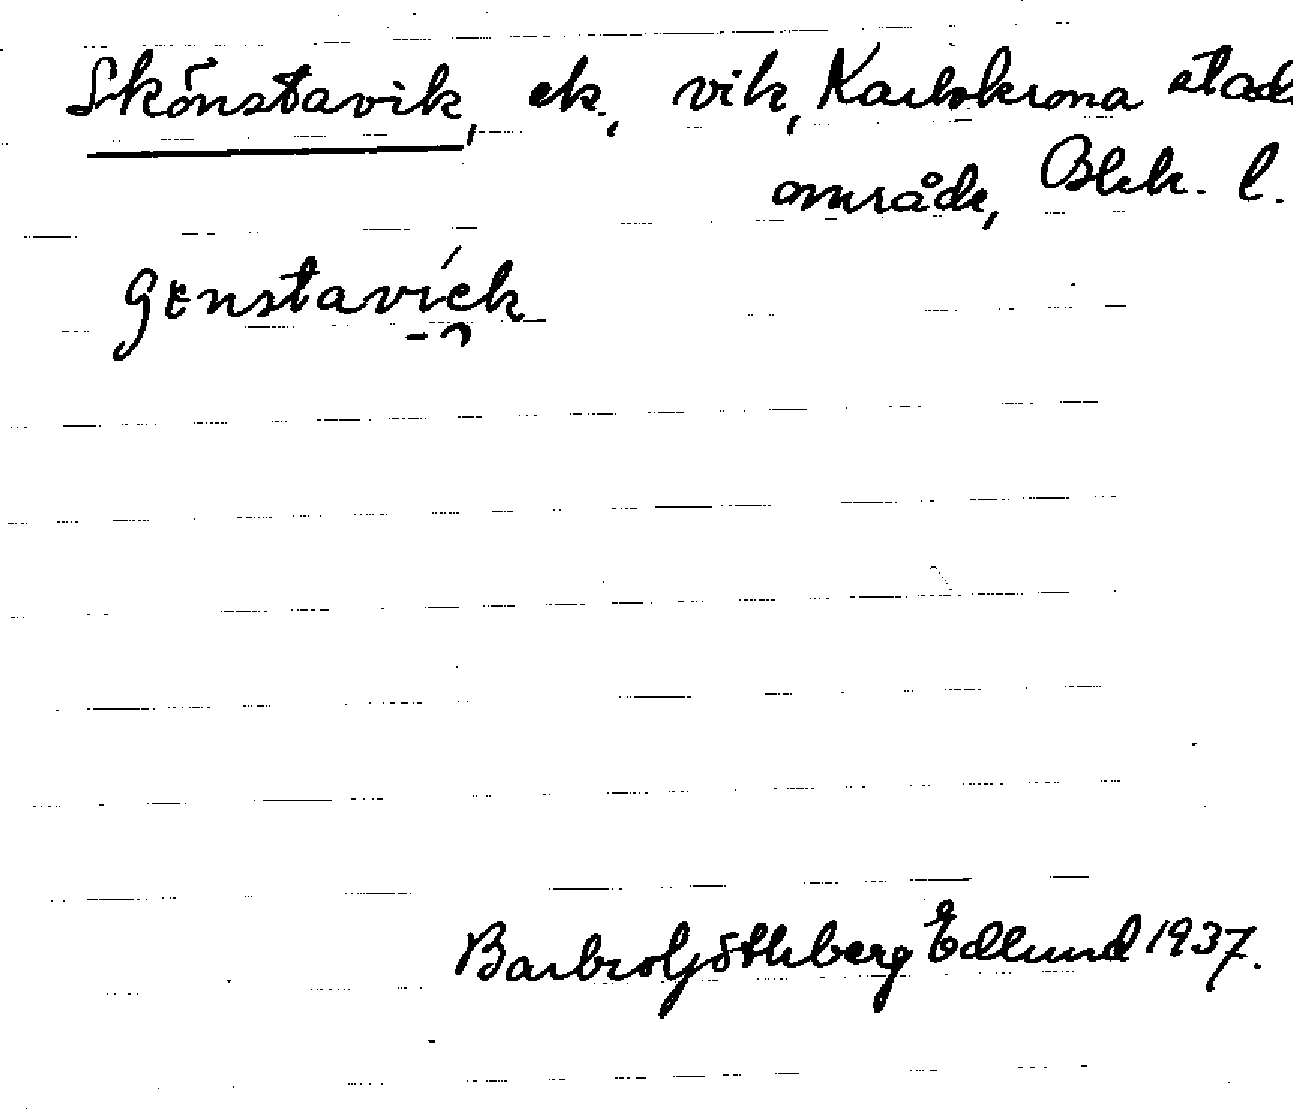 Skönstavik, ek., vik, Karlskrona stads
område, Blek. l.
Barbro Götheberg Edlund 1937.